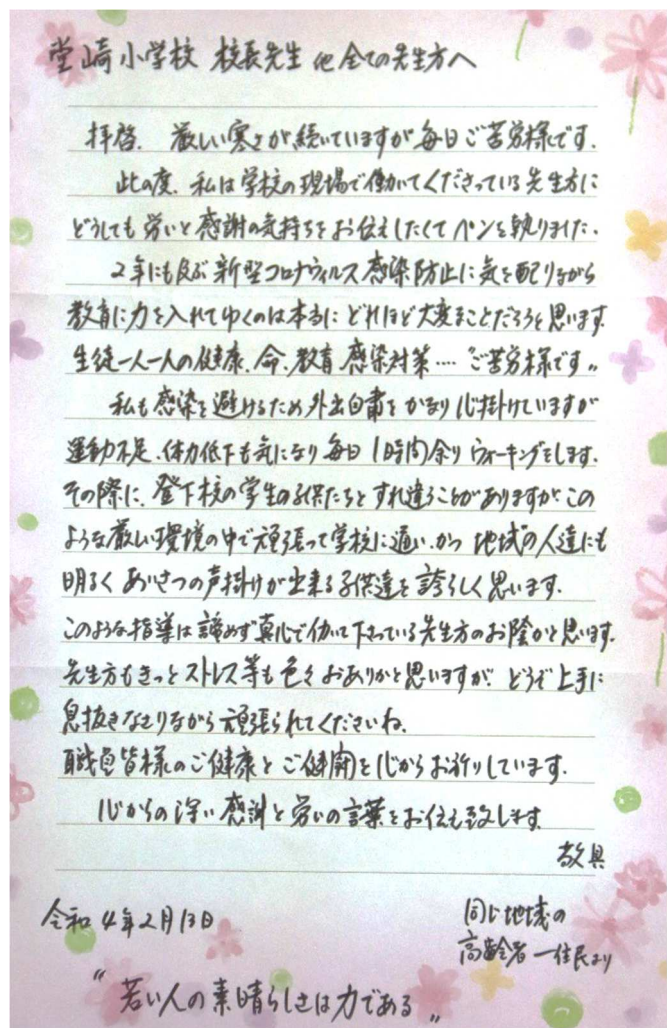 堂崎小学校 校長先生 他全ての先生方へ
拝啓、厳しい寒さが続いていますが毎日ご苦労様です。
此の度、私は学校の現場で働いてくださっている先生方に
どうしても労いと感謝の気持ちをお伝えしたくてペンを執りました。
2年にも及ぶ新型コロナウィルス感染防止に気を配りながら
教育に力を入れてゆくのは本当にどれほど大変なことだろうと思います。
生徒一人一人の健康、命、教育、感染対策‥‥“ご苦労様です”
私も感染を避けるため外出自粛をかなり心掛けていますが
運動不足、体力低下も気になり毎日1時間余りウォーキングをします。
その際に、登下校の学生の子供たちとすれ違うことがありますがこの
ような厳しい環境の中で頑張って学校に通い、かつ地域の人達にも
明るくあいさつの声掛けが出来る子供達を誇らしく思います。
このような指導は諦めず真心で働いて下さっている先生方のお陰かと思います。
先生方もきっとストレス等も色々おありかと思いますが、どうぞ上手に
息抜きなさりながら頑張られてくださいね。
職員皆様のご健康とご健闘を心からお祈りしています。
心からの深い感謝と労いの言葉をお伝え致します。
敬具
令和4年2月13日
同じ地域の
高齢者一住民より
“若い人の素晴らしさは力である”